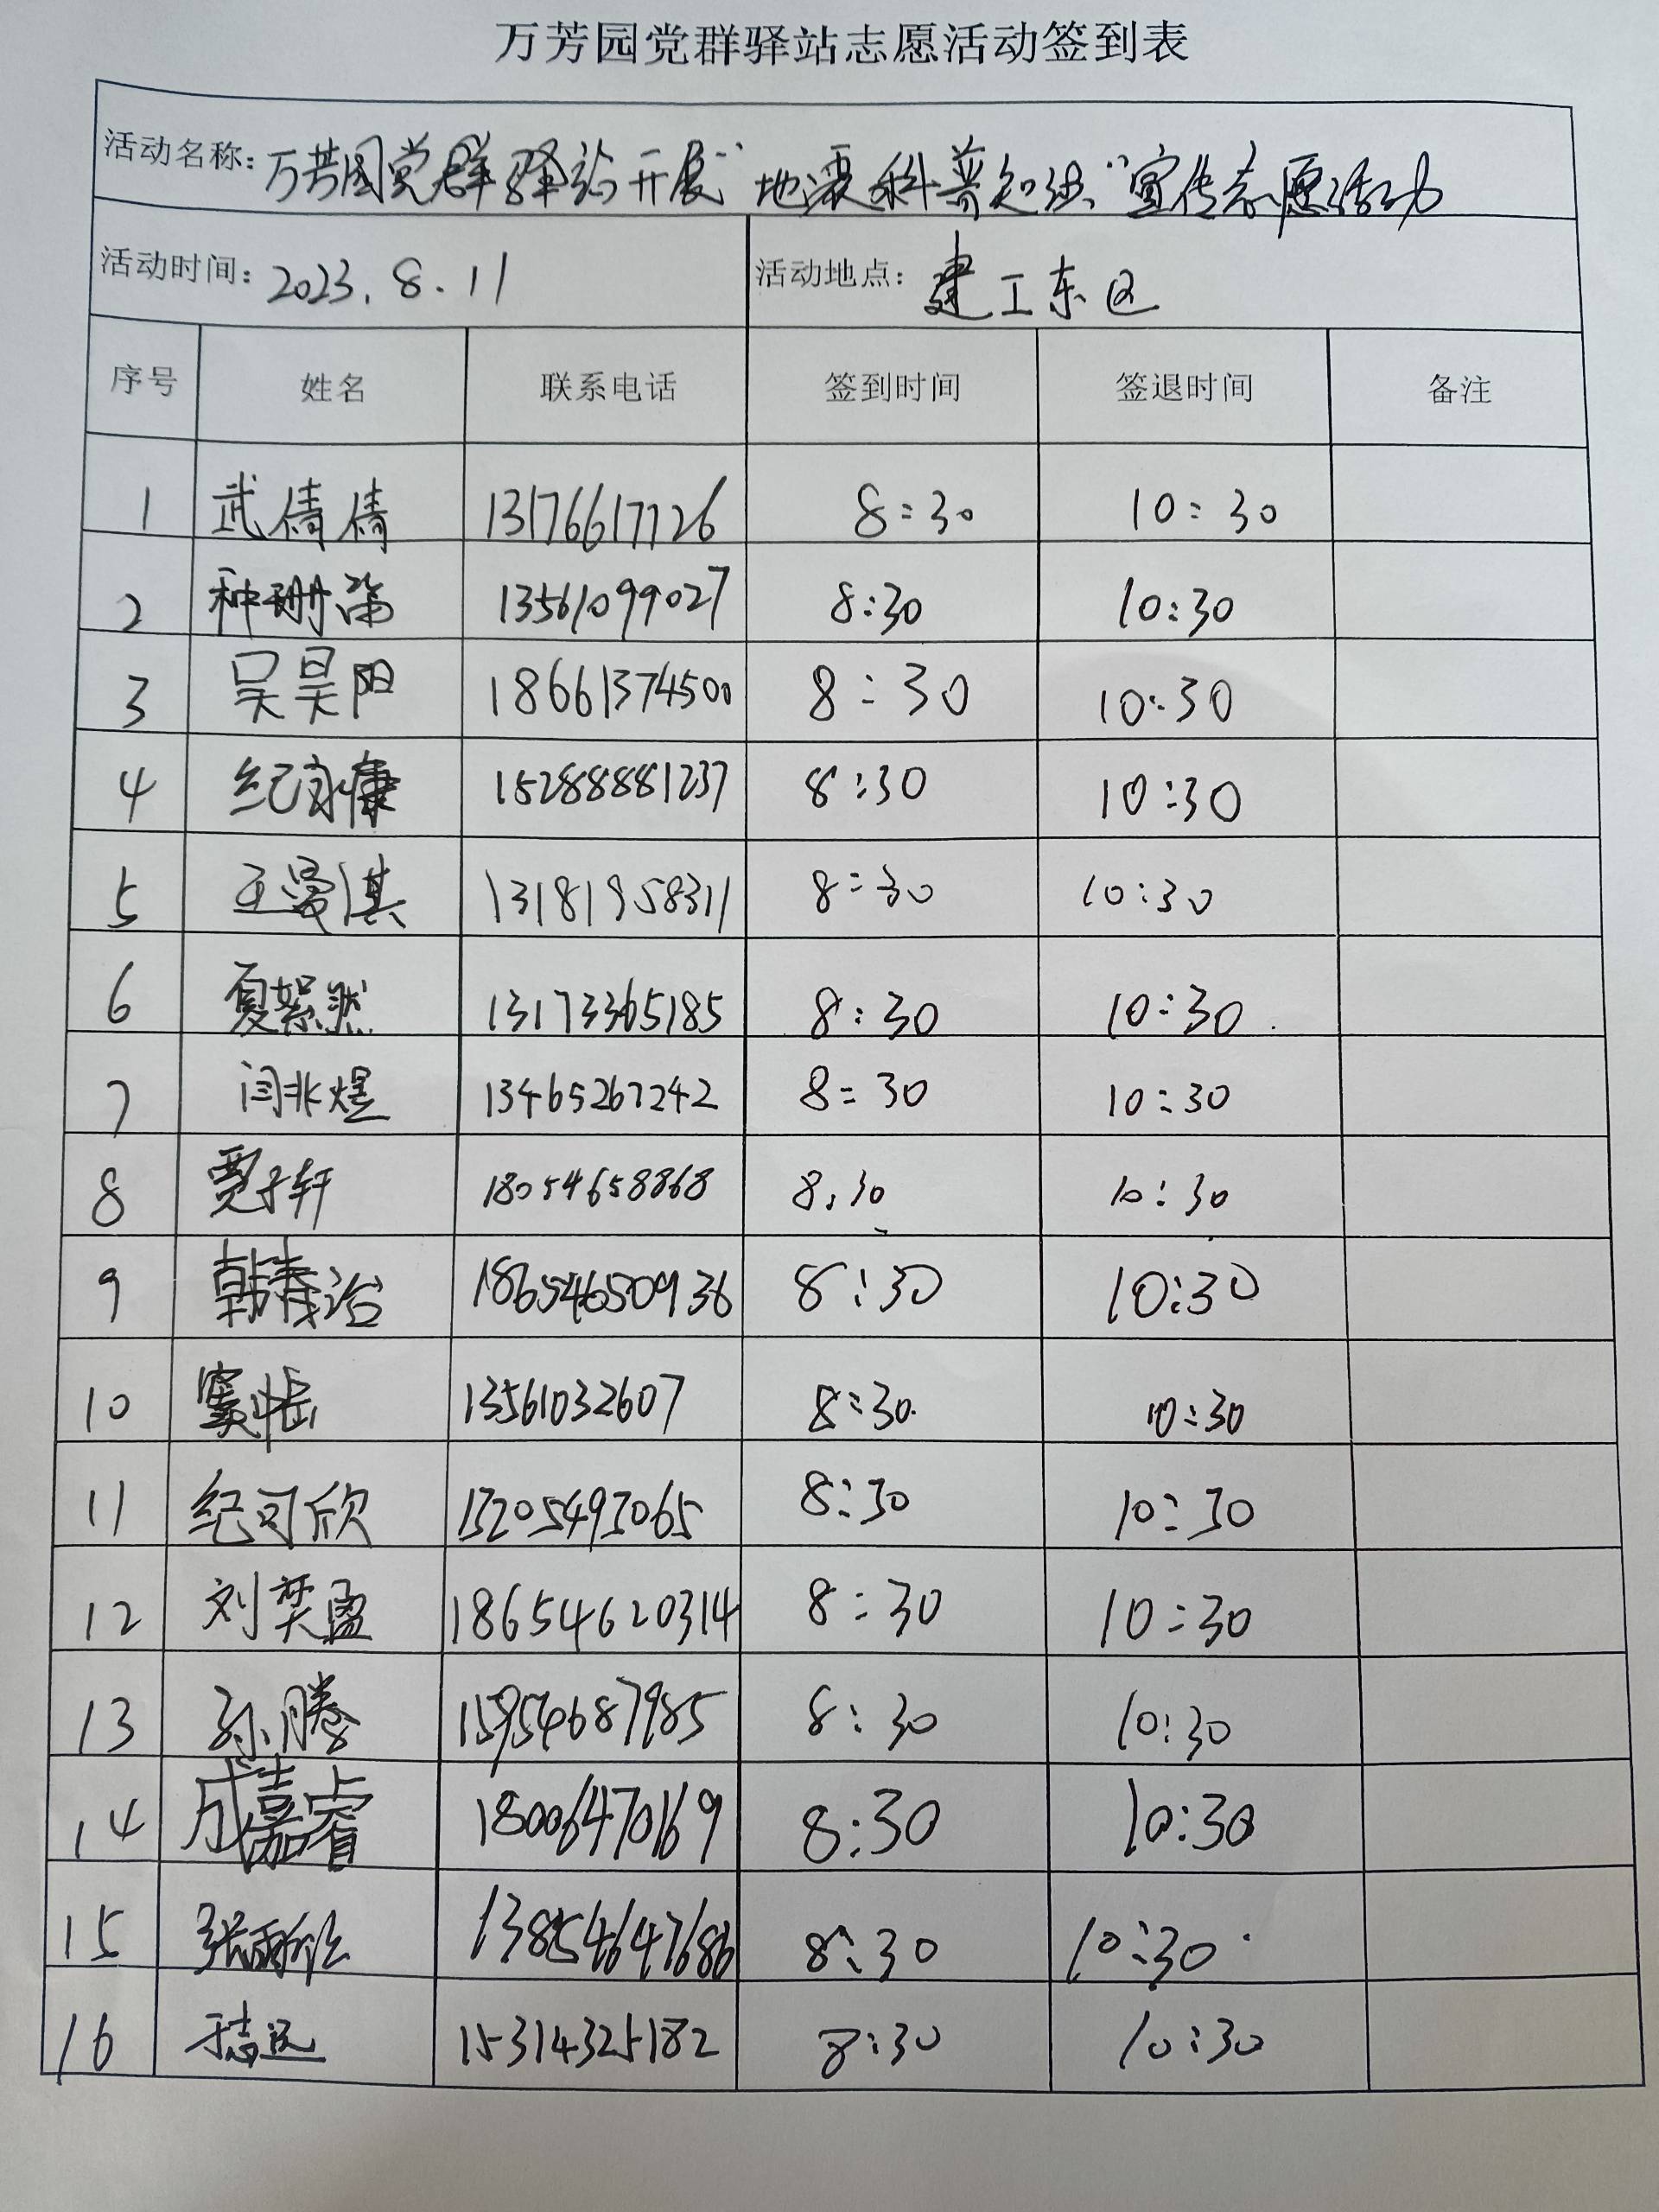 万芳园党群驿站志愿活动签到表
活动名称: 万芳园党群驿站开展“地震科普知识”宣传志愿活动
活动时间: 2023.8.11 活动地点: 建工东区
序号 姓名 联系电话 签到时间 签退时间 备注
1 武倩倩 13176617726 8:30 10:30
2 种珊 13561099027 8:30 10:30
3 吴昊阳 18661374500 8:30 10:30
4 纪永康 15288881237 8:30 10:30
5 王曼淇 13181958311 8:30 10:30
6 夏絮然 13173365185 8:30 10:30
7 闫兆煜 13465267242 8:30 10:30
8 贾子轩 18054658868 8:30 10:30
9 韩春治 18654650936 8:30 10:30
10 窦 13561032607 8:30 10:30
11 纪可欣 13205493065 8:30 10:30
12 刘奕盈 18654620314 8:30 10:30
13 孙腾 15954687985 8:30 10:30
14 成嘉睿 18006470169 8:30 10:30
15 张雨欣 13854647686 8:30 10:30
16 于志远 15314325182 8:30 10:30